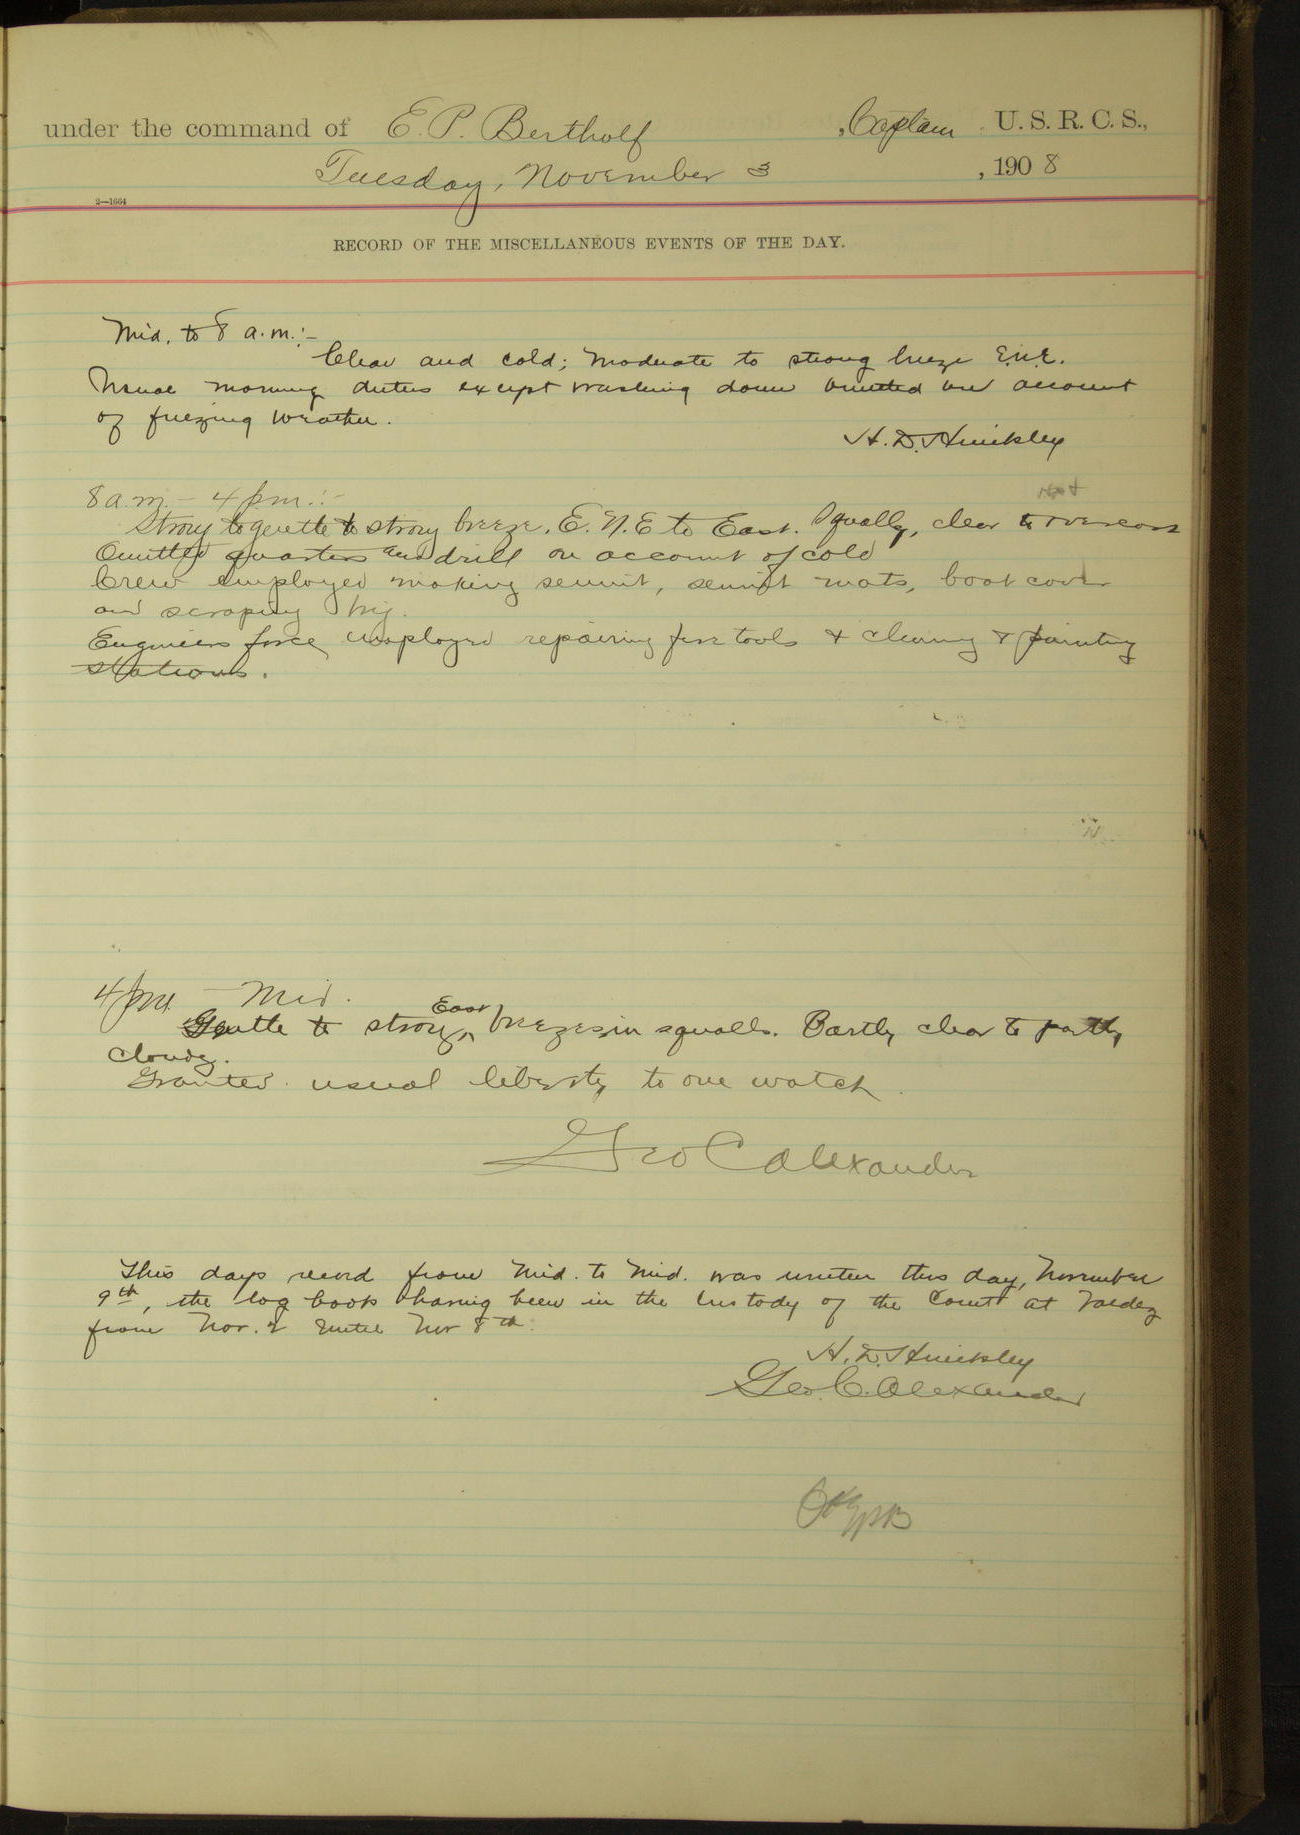 under the command of E. P. Bertholf, Captain U. S. R. C. S.,
Tuesday, November 3, 1908
2—1664
RECORD OF THE MISCELLANEOUS EVENTS OF THE DAY.
Mid. to 8 a.m.:-
Clear and cold; moderate to strong breeze E.N.E.
Usual morning duties except washing down omitted on account
of freezing weather.
H. D. Hinckley
8 a.m. - 4 p.m.:-
Strong to gentle to strong breeze, E. N. E to East. Squally, clear to overcast
Omitted quarters and drill on account of cold
Crew employed making sennit, sennit mats, boat cover
and scraping brig.
Engineers force employed repairing fire tools & cleaning & painting
stations.
4 p.m. - Mid.
Gentle to strong East breezes, in squalls. Partly clear to partly
cloudy.
Granted usual liberty to one watch.
Geo C Alexander
This days record from mid. to mid. was written this day, November
9th, the log book having been in the custody of the Court at Valdez
from Nov. 2 until Nov 8th.
H. D. Hinckley
Geo. C. Alexander
OK EPB